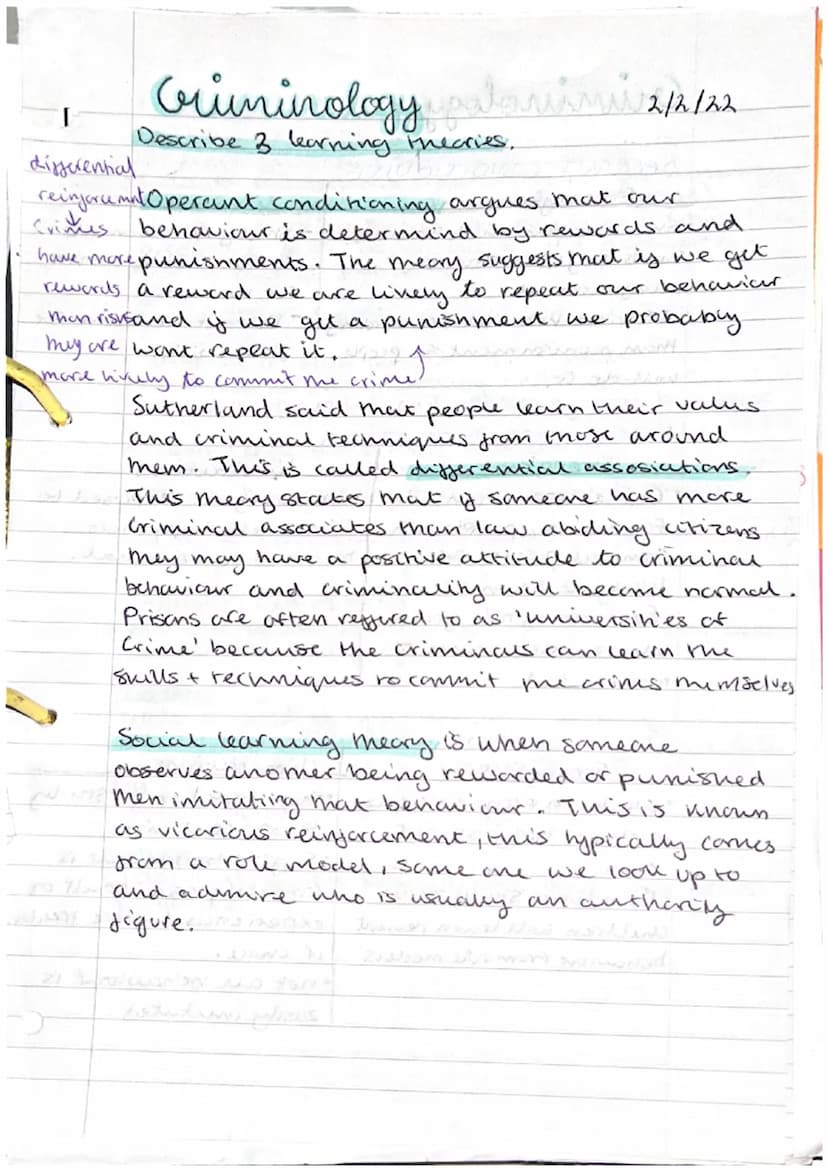 Criminology 2/2/22
I
Describe 3 learning theories.
differential
reinforcemnt
Crimes
have more
rewards
than risks
they are
more likely to commit the crime
Operant conditioning argues that our
behaviour is determind by rewards and
punishments. The theory suggests that if we get
a reward we are likely to repeat our behaviour
and if we get a punishment we probably
wont repeat it.
Sutherland said that people learn their values
and criminal techniques from those around
them. This is called differential assosiations.
This theory states that if someone has more
Criminal associates than law abiding citizens
they may have a positive attitude to criminal
behaviour and criminality will become normal.
Prisons are often reffured to as 'universities of
Crime' because the criminals can learn the
skills + techniques to commit the crimes themselves
Social learning theory is when someone
observes another being rewarded or punished
then imitatiing that behaviour. This is known
as vicarious reinforcement, this typically comes
from a role model, some one we look up to
and admire who is usually an authority
figure.